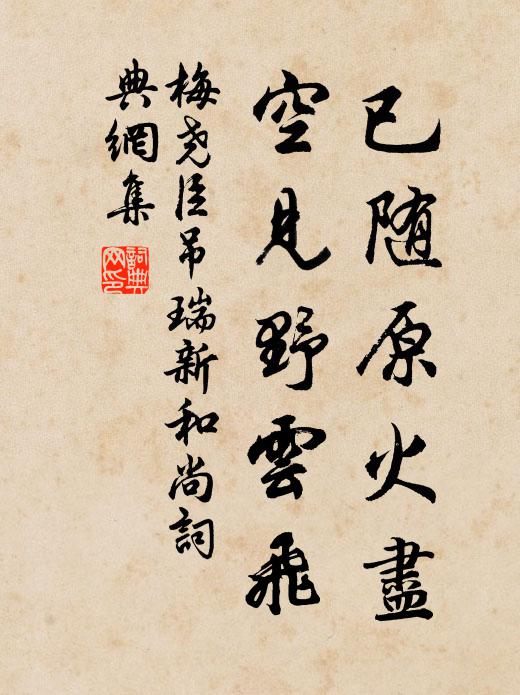 已随原火盡
空見野雲飛
梅尭臣吊瑞新和尚詞
典網集
詞典网印